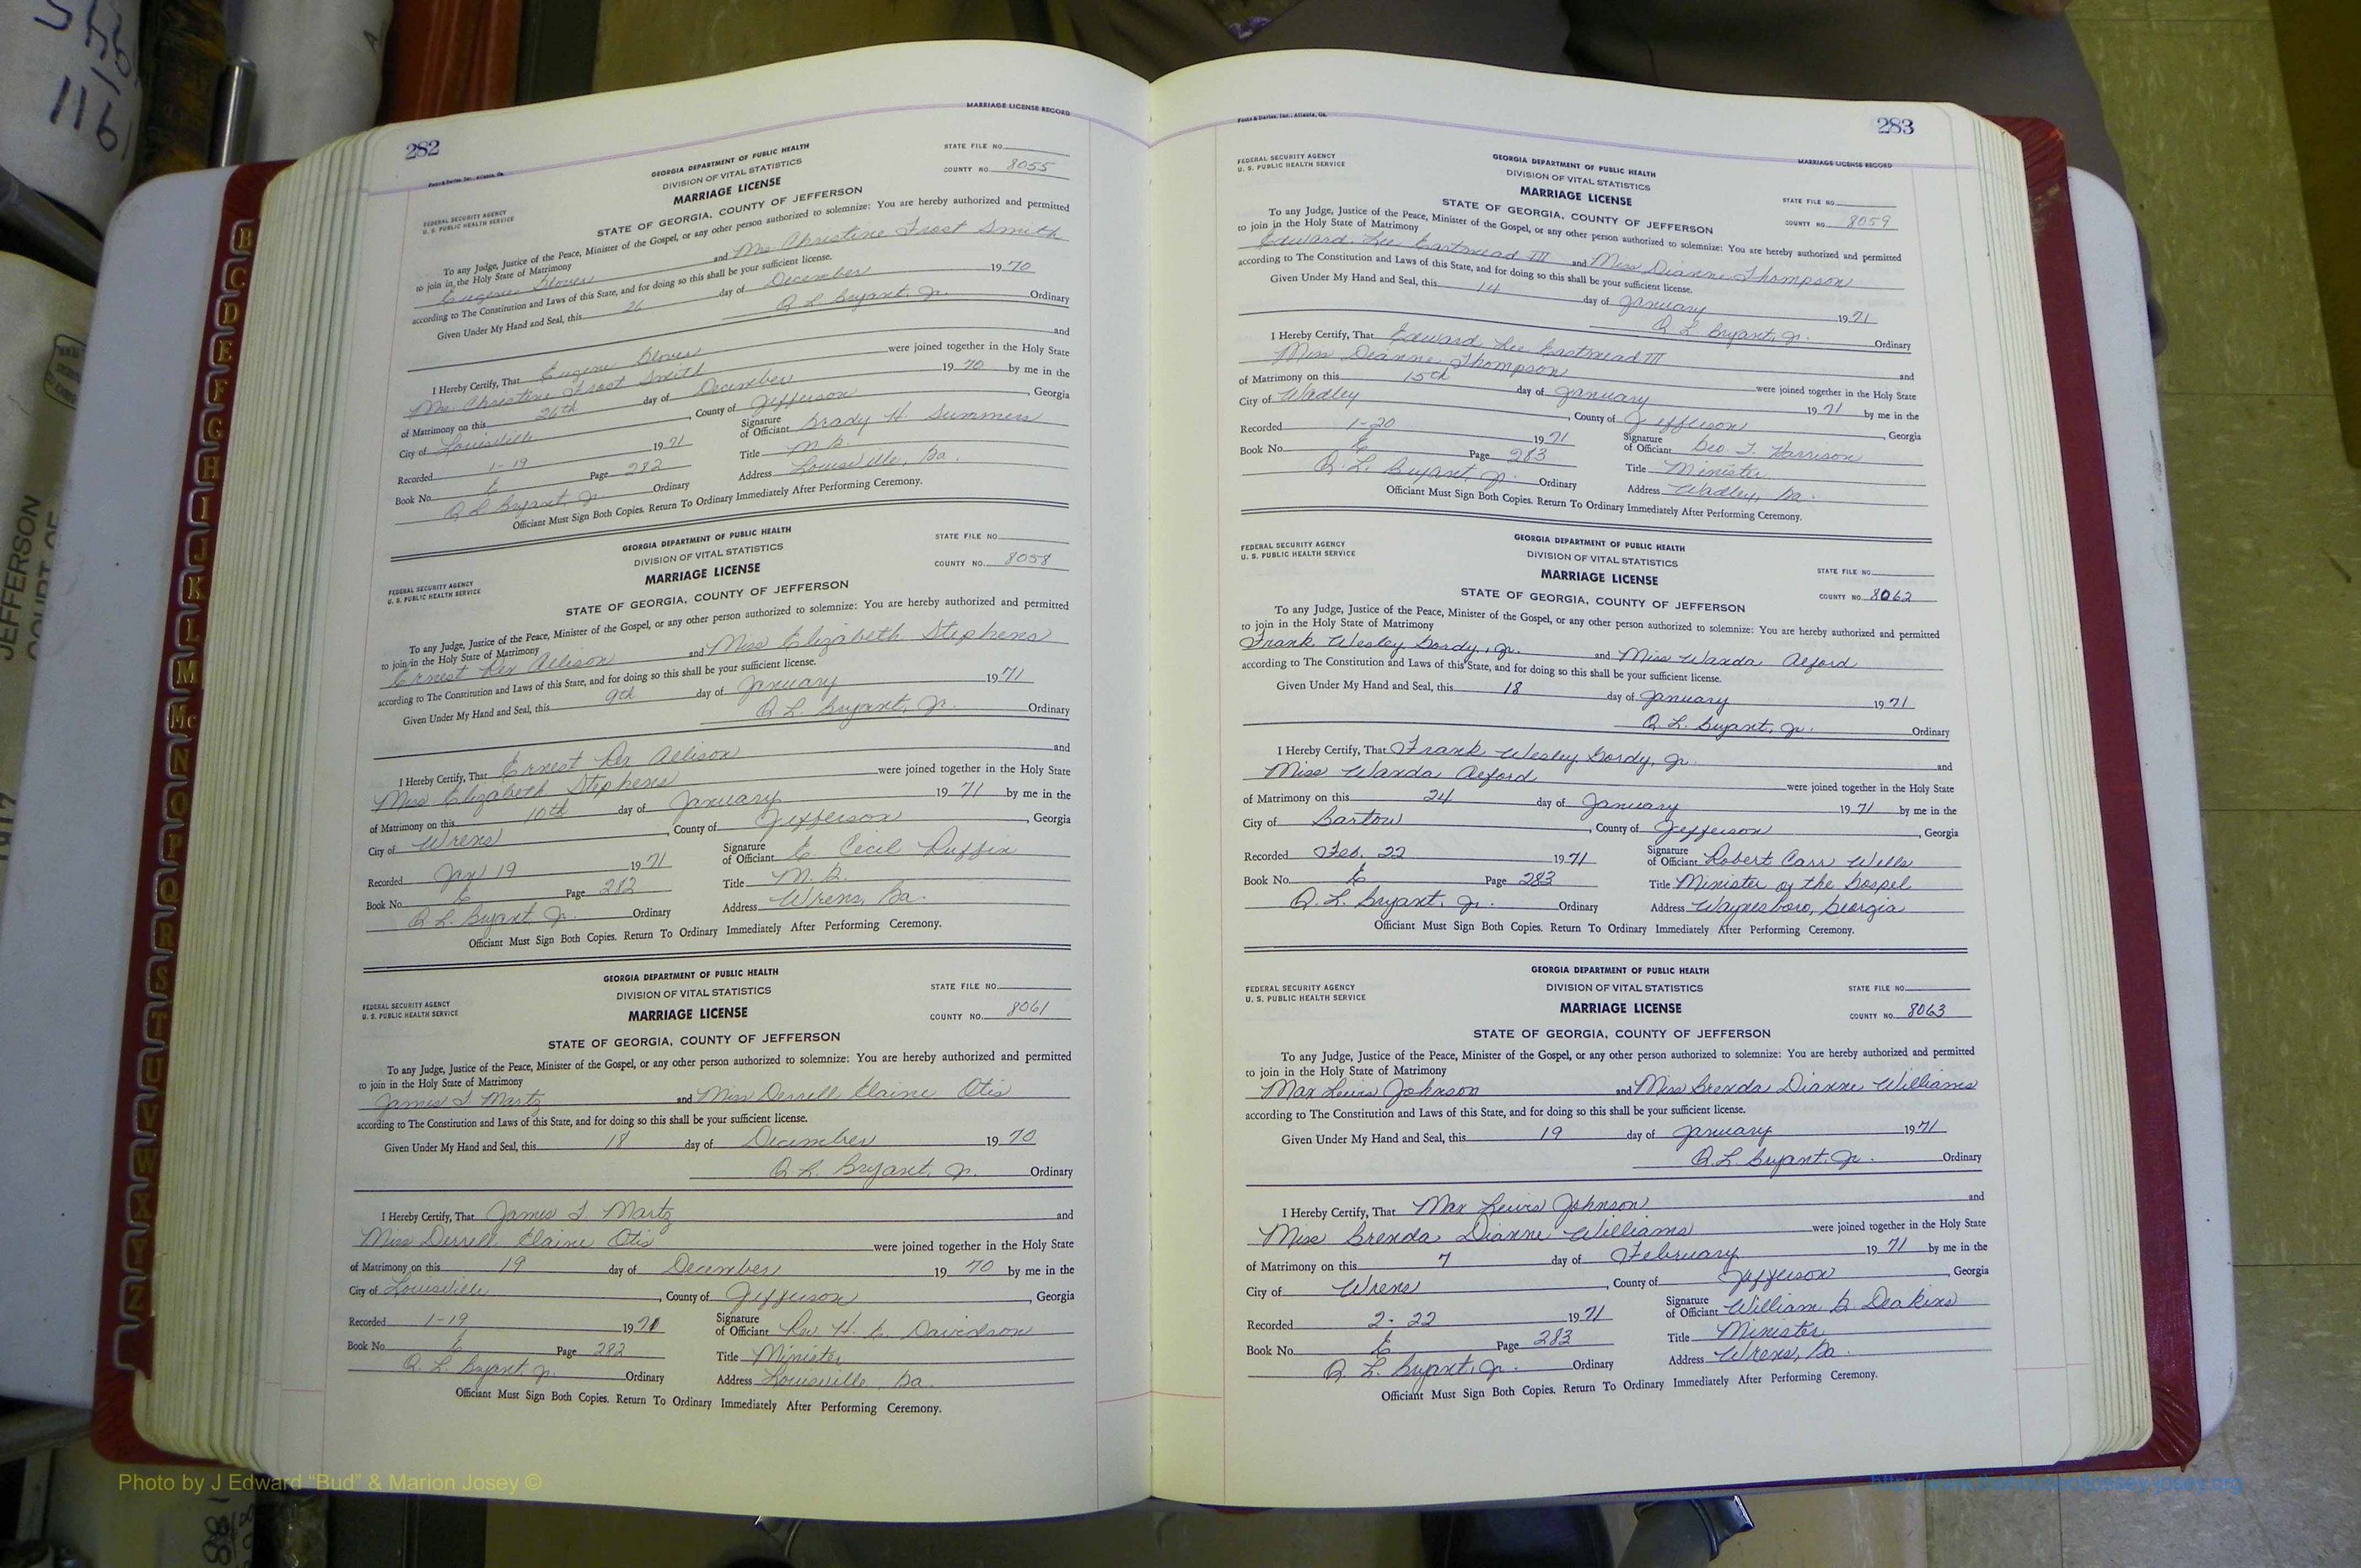 282
MARRIAGE LICENSE RECORD
GEORGIA DEPARTMENT OF PUBLIC HEALTH
DIVISION OF VITAL STATISTICS
MARRIAGE LICENSE
STATE FILE NO.
COUNTY NO. 8055
FEDERAL SECURITY AGENCY
U. S. PUBLIC HEALTH SERVICE
STATE OF GEORGIA, COUNTY OF JEFFERSON
To any Judge, Justice of the Peace, Minister of the Gospel, or any other person authorized to solemnize: You are hereby authorized and permitted
to join in the Holy State of Matrimony
Eugene Glover and Mrs. Christine Frost Smith
according to The Constitution and Laws of this State, and for doing so this shall be your sufficient license.
Given Under My Hand and Seal, this 26 day of December 1970
Q. L. Bryant, Jr. Ordinary
I Hereby Certify, That Eugene Glover and
Mrs. Christine Frost Smith were joined together in the Holy State
of Matrimony on this 26th day of December 1970 by me in the
City of Louisville, County of Jefferson, Georgia
Recorded 1-19 1971 Signature of Officiant Grady H. Summers
Book No. E Page 282 Title
Q. L. Bryant, Jr. Ordinary Address Louisville, Ga.
Officiant Must Sign Both Copies. Return To Ordinary Immediately After Performing Ceremony.
GEORGIA DEPARTMENT OF PUBLIC HEALTH
DIVISION OF VITAL STATISTICS
MARRIAGE LICENSE
STATE FILE NO.
COUNTY NO. 8058
FEDERAL SECURITY AGENCY
U. S. PUBLIC HEALTH SERVICE
STATE OF GEORGIA, COUNTY OF JEFFERSON
To any Judge, Justice of the Peace, Minister of the Gospel, or any other person authorized to solemnize: You are hereby authorized and permitted
to join in the Holy State of Matrimony
Ernest Rex Allison and Miss Elizabeth Stephens
according to The Constitution and Laws of this State, and for doing so this shall be your sufficient license.
Given Under My Hand and Seal, this 9th day of January 1971
Q. L. Bryant, Jr. Ordinary
I Hereby Certify, That Ernest Rex Allison and
Miss Elizabeth Stephens were joined together in the Holy State
of Matrimony on this 10th day of January 1971 by me in the
City of Wrens, County of Jefferson, Georgia
Recorded Jan 19 1971 Signature of Officiant E. Cecil Ruffin
Book No. E Page 282 Title
Q. L. Bryant, Jr. Ordinary Address Wrens, Ga.
Officiant Must Sign Both Copies. Return To Ordinary Immediately After Performing Ceremony.
GEORGIA DEPARTMENT OF PUBLIC HEALTH
DIVISION OF VITAL STATISTICS
MARRIAGE LICENSE
STATE FILE NO.
COUNTY NO. 8061
FEDERAL SECURITY AGENCY
U. S. PUBLIC HEALTH SERVICE
STATE OF GEORGIA, COUNTY OF JEFFERSON
To any Judge, Justice of the Peace, Minister of the Gospel, or any other person authorized to solemnize: You are hereby authorized and permitted
to join in the Holy State of Matrimony
James T Martz and Miss Derrell Elaine Otis
according to The Constitution and Laws of this State, and for doing so this shall be your sufficient license.
Given Under My Hand and Seal, this 18 day of December 1970
Q. L. Bryant, Jr. Ordinary
I Hereby Certify, That James T. Martz and
Miss Derrell Elaine Otis were joined together in the Holy State
of Matrimony on this 19 day of December 1970 by me in the
City of Louisville, County of Jefferson, Georgia
Recorded 1-19 1971 Signature of Officiant Rev. H. Davidson
Book No. E Page 282 Title Minister
Q. L. Bryant, Jr. Ordinary Address Louisville, Ga.
Officiant Must Sign Both Copies. Return To Ordinary Immediately After Performing Ceremony.
283
MARRIAGE LICENSE RECORD
FEDERAL SECURITY AGENCY
U. S. PUBLIC HEALTH SERVICE
GEORGIA DEPARTMENT OF PUBLIC HEALTH
DIVISION OF VITAL STATISTICS
MARRIAGE LICENSE
STATE OF GEORGIA, COUNTY OF JEFFERSON
STATE FILE NO.
COUNTY NO. 8059
To any Judge, Justice of the Peace, Minister of the Gospel, or any other person authorized to solemnize: You are hereby authorized and permitted
to join in the Holy State of Matrimony
Edward Lee Eastmead III and Miss Dianne Thompson
according to The Constitution and Laws of this State, and for doing so this shall be your sufficient license.
Given Under My Hand and Seal, this 14 day of January 1971
Q. L. Bryant, Jr. Ordinary
I Hereby Certify, That Edward Lee Eastmead III and
Miss Dianne Thompson were joined together in the Holy State
of Matrimony on this 15th day of January 1971 by me in the
City of Wadley, County of Jefferson, Georgia
Recorded 1-20 1971 Signature of Officiant Geo. T. Harrison
Book No. E Page 283 Title Minister
Q. L. Bryant, Jr. Ordinary Address Wadley, Ga.
Officiant Must Sign Both Copies. Return To Ordinary Immediately After Performing Ceremony.
FEDERAL SECURITY AGENCY
U. S. PUBLIC HEALTH SERVICE
GEORGIA DEPARTMENT OF PUBLIC HEALTH
DIVISION OF VITAL STATISTICS
MARRIAGE LICENSE
STATE OF GEORGIA, COUNTY OF JEFFERSON
STATE FILE NO.
COUNTY NO. 8062
To any Judge, Justice of the Peace, Minister of the Gospel, or any other person authorized to solemnize: You are hereby authorized and permitted
to join in the Holy State of Matrimony
Frank Wesley Gordy, Jr. and Miss Wanda Alford
according to The Constitution and Laws of this State, and for doing so this shall be your sufficient license.
Given Under My Hand and Seal, this 18 day of January 1971
Q. L. Bryant, Jr. Ordinary
I Hereby Certify, That Frank Wesley Gordy, Jr. and
Miss Wanda Alford were joined together in the Holy State
of Matrimony on this 24 day of January 1971 by me in the
City of Bartow, County of Jefferson, Georgia
Recorded Feb. 22 1971 Signature of Officiant Robert Carr Wells
Book No. E Page 283 Title Minister of the Gospel
Q. L. Bryant, Jr. Ordinary Address Waynesboro, Georgia
Officiant Must Sign Both Copies. Return To Ordinary Immediately After Performing Ceremony.
FEDERAL SECURITY AGENCY
U. S. PUBLIC HEALTH SERVICE
GEORGIA DEPARTMENT OF PUBLIC HEALTH
DIVISION OF VITAL STATISTICS
MARRIAGE LICENSE
STATE OF GEORGIA, COUNTY OF JEFFERSON
STATE FILE NO.
COUNTY NO. 8063
To any Judge, Justice of the Peace, Minister of the Gospel, or any other person authorized to solemnize: You are hereby authorized and permitted
to join in the Holy State of Matrimony
Max Lewis Johnson and Miss Brenda Dianne Williams
according to The Constitution and Laws of this State, and for doing so this shall be your sufficient license.
Given Under My Hand and Seal, this 19 day of January 1971
Q. L. Bryant, Jr. Ordinary
I Hereby Certify, That Max Lewis Johnson and
Miss Brenda Dianne Williams were joined together in the Holy State
of Matrimony on this 7 day of February 1971 by me in the
City of Wrens, County of Jefferson, Georgia
Recorded 2-22 1971 Signature of Officiant William G. Deakins
Book No. E Page 283 Title Minister
Q. L. Bryant, Jr. Ordinary Address Wrens, Ga.
Officiant Must Sign Both Copies. Return To Ordinary Immediately After Performing Ceremony.
B
C
D
E
F
G
H
I
J
K
L
M
Mc
N
O
P
Q
R
S
T
U
V
W
X
Y
Z
JEFFERSON
COURT OF
116
Photo by J Edward “Bud” & Marion Josey ©